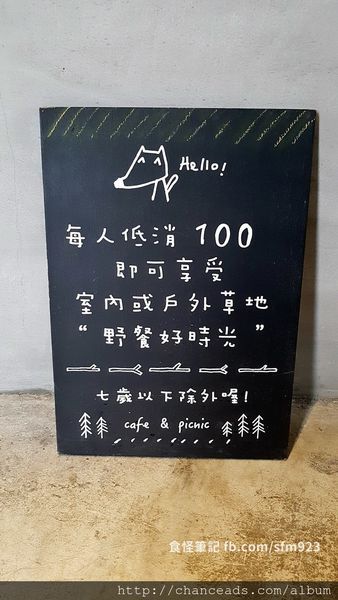 Hello!
每人低消 100
即可享受
室內或戶外草地
“野餐好時光”
七歲以下除外喔!
cafe & picnic
食怪筆記 fb.com/sfm923
http://chanceads.com/album